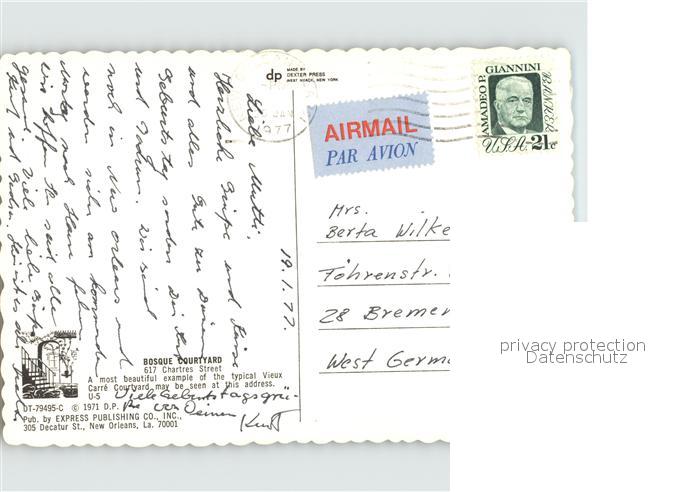 dp
MADE BY
DEXTER PRESS
WEST NYACK, NEW YORK
1977
AIRMAIL
PAR AVION
AMADEO P. GIANNINI
BANKER
U.S.A. 21c
19.1.77.
Liebe Mutti,
Herzliche Grüße und Küsse
und alles Gute zu Deinem
Geburtstag senden Dir Kurt
und Wir sind
noch in New Orleans und
werden sicher am kommenden
nach Hause fahren
Wir hoffen Ihr seid alle
gesund. Viele liebe Grüße
Mrs.
Berta Wilke
Föhrenstr.
28 Bremen
West Germa
BOSQUE COURTYARD
617 Chartres Street
A most beautiful example of the typical Vieux
Carré Courtyard may be seen at this address.
U-5
Viele Geburtstagsgrü-
ße von Deinem
Kurt
DT-79495-C © 1971 D.P.
Pub. by EXPRESS PUBLISHING CO., INC.,
305 Decatur St., New Orleans, La. 70001
privacy protection
Datenschutz